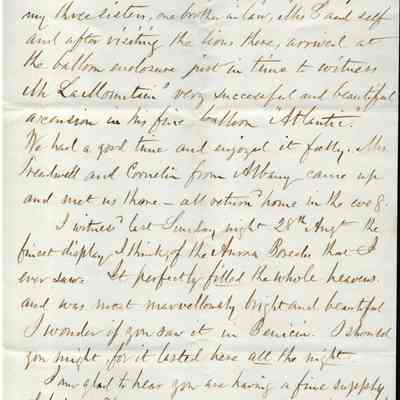 my three sisters, one brother in law, Mrs P and self
and after visiting the lions there, arrived at
the balloon enclosure just in time to witness
Mr LaMountain's very successful and beautiful
ascension in his fine balloon "Atlantic".
We had a good time and enjoyed it  Mrs
Treadwell and Cornelia from Albany came up
and met us there – all return'd home in the eve'g.
I witness'd last Sunday night 28th Augt the
finest display I think of the Aurora Borealis that I
ever saw. It perfectly filled the whole heavens
and was most marvellously bright and beautiful
I wonder if you saw it in Benicia. I should
 you might, for it lasted here all the night.
I am glad to hear you are having a fine supply